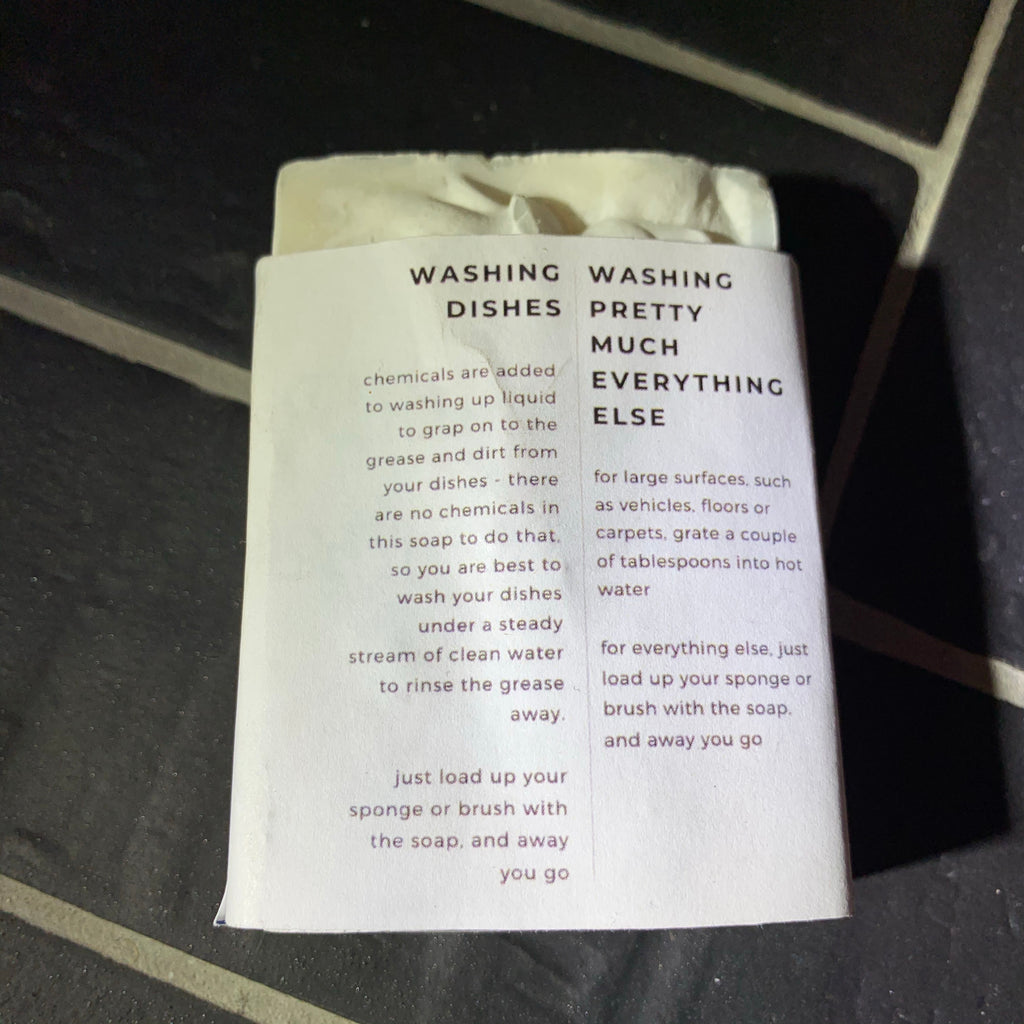 WASHING
DISHES
chemicals are added
to washing up liquid
to grap on to the
grease and dirt from
your dishes - there
are no chemicals in
this soap to do that,
so you are best to
wash your dishes
under a steady
stream of clean water
to rinse the grease
away.
just load up your
sponge or brush with
the soap, and away
you go
WASHING
PRETTY
MUCH
EVERYTHING
ELSE
for large surfaces, such
as vehicles, floors or
carpets, grate a couple
of tablespoons into hot
water
for everything else, just
load up your sponge or
brush with the soap,
and away you go